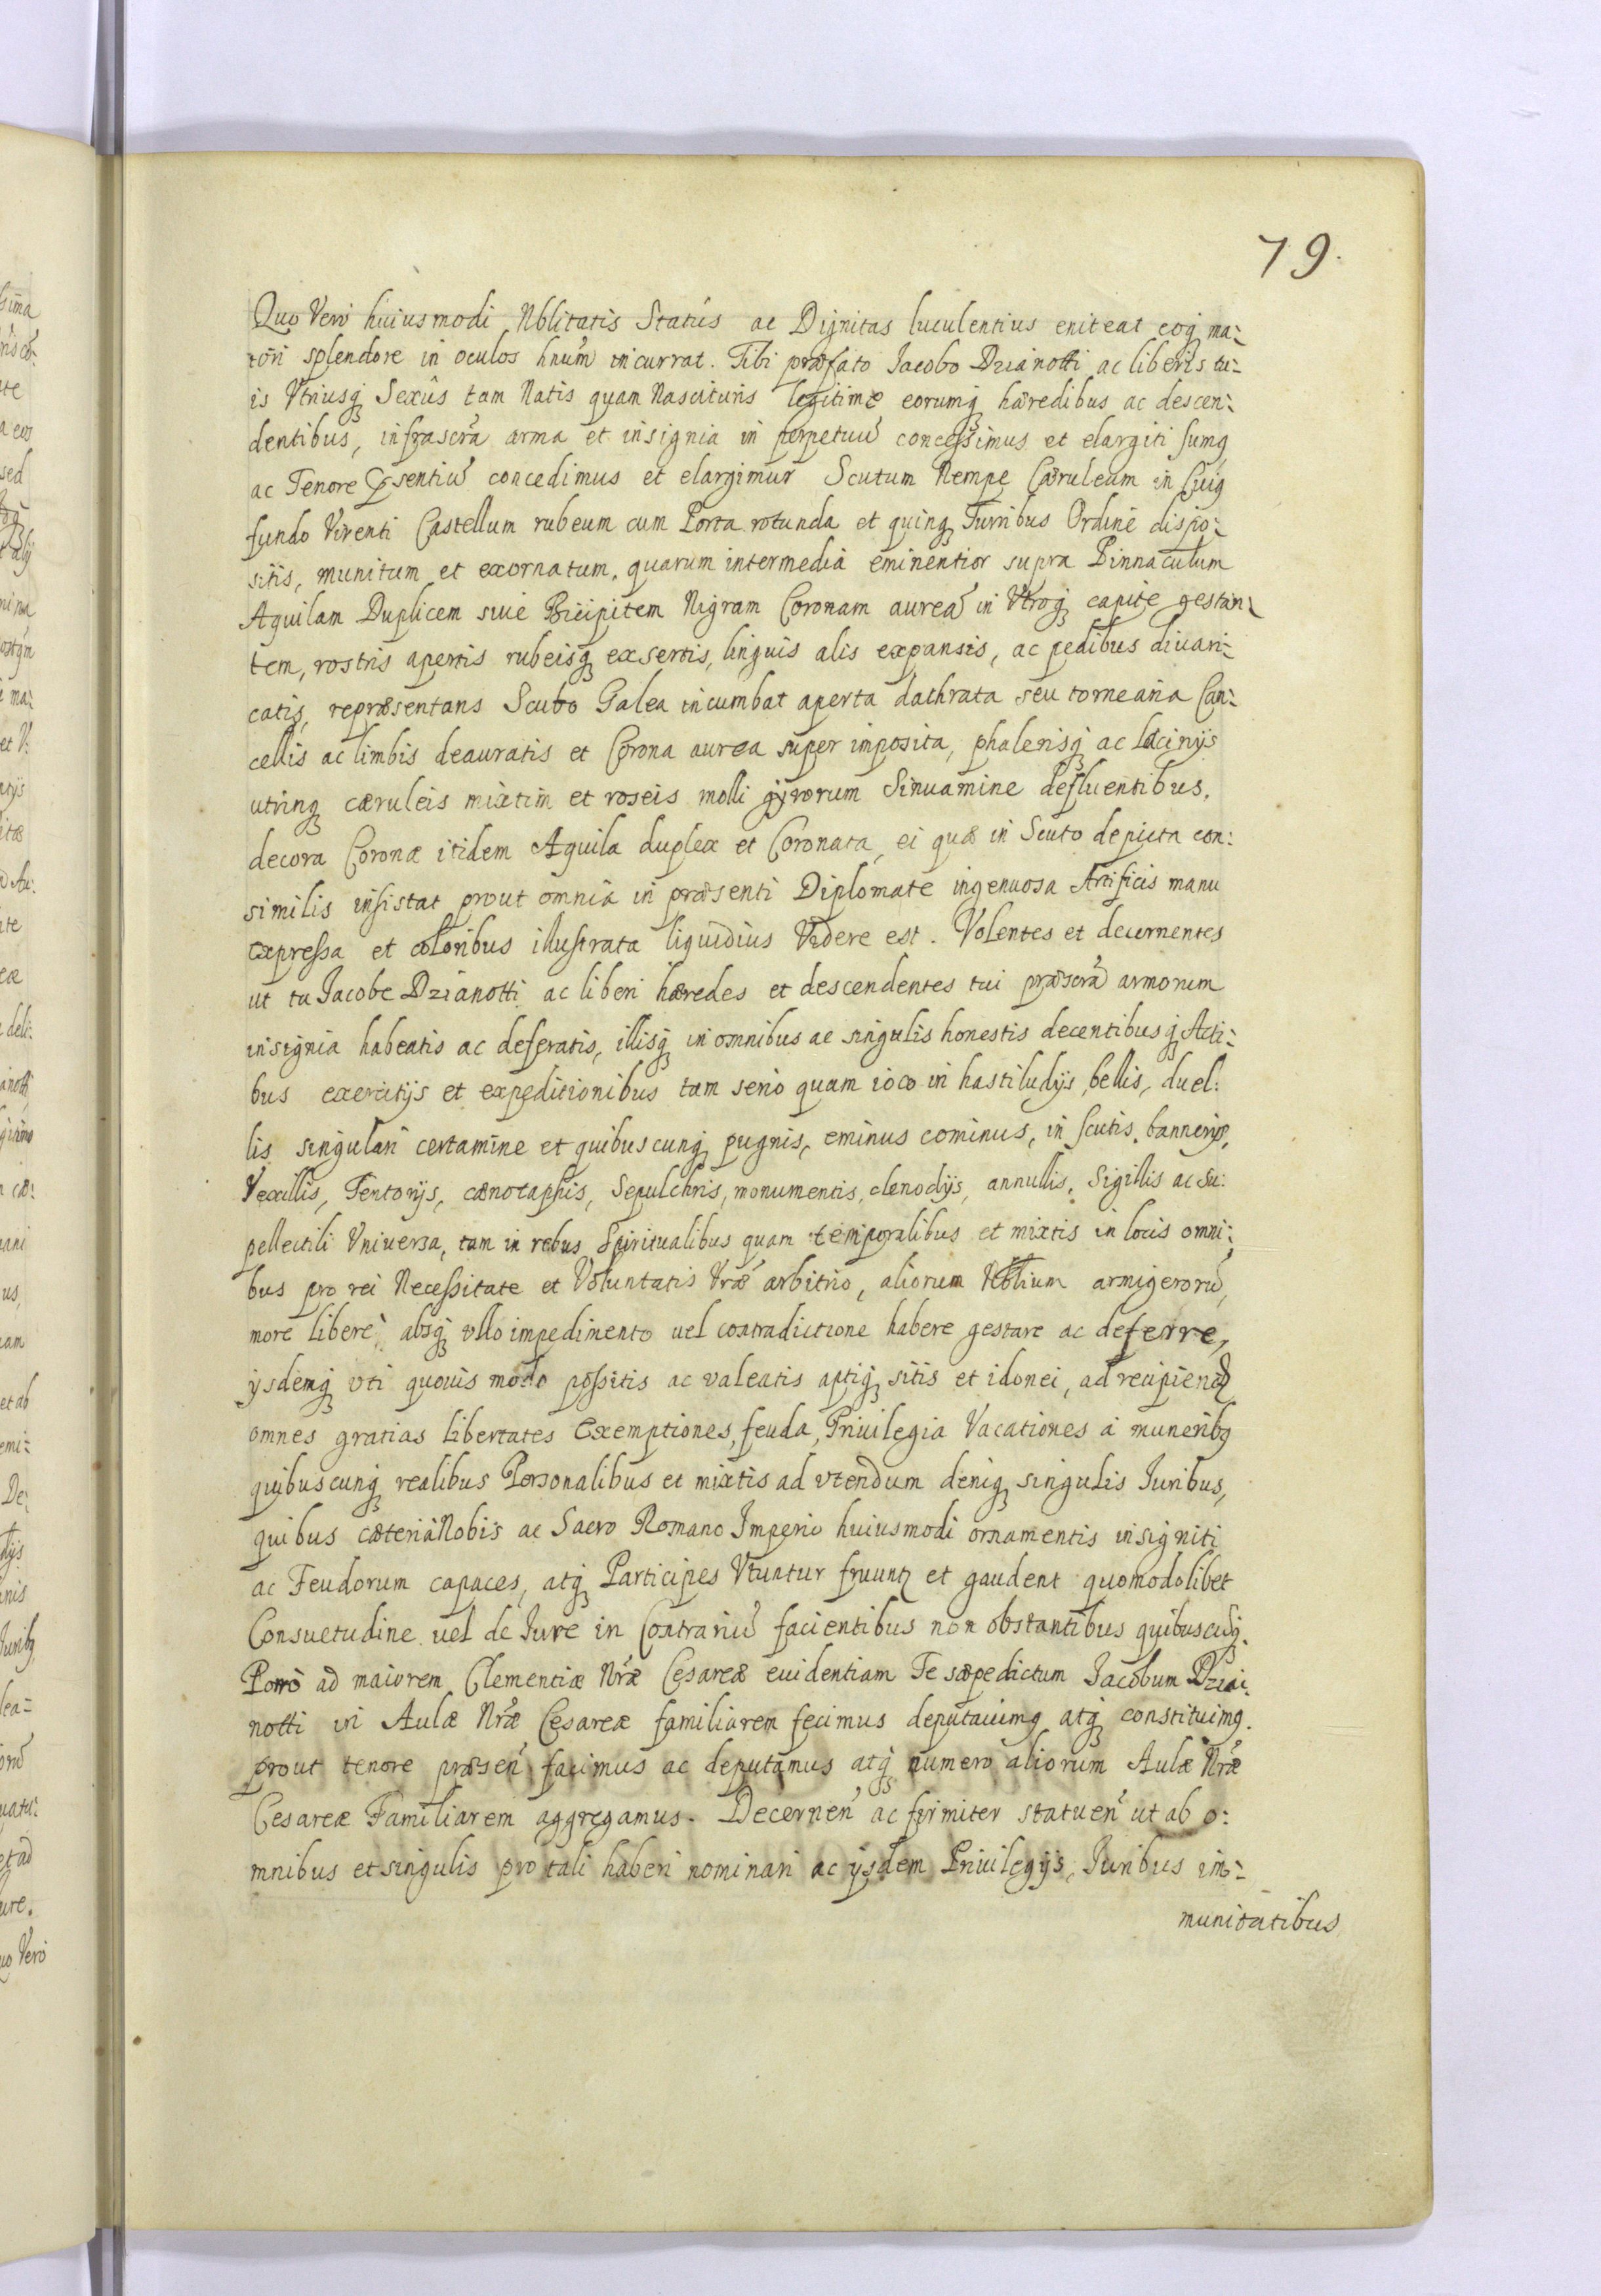 79.
Quo Vero huiusmodi Nblitatis Statûs ac Dignitas luculentius eniteat eoq; ma-
iori splendore in oculos hnum̃ incurrat. Tibi præfato Iacobo Dzianotti ac liberis tu-
is Vtriusq; Sexûs tam Natis quam Nascituris legitime eorumq; hæredibus ac descen-
dentibus, infrascra arma et insignia in perpetuũ concessimus et elargiti sumq
ac Tenore Psentiũ concedimus et elargimur Scutum Nempe Cæruleum in Cuiq
fundo Virenti Castellum rubeum cum Porta rotunda et quinq; Turribus Ordine dispo-
sitis, munitum et exornatum. quarum intermedia eminentior supra Pinnaculum
Aquilam Duplicem siue Bicipitem Nigram Coronam aureã in Vtroq; capite gestan-
tem, rostris apertis rubeisq; exsertis, linguis alis expansis, ac pedibus diuari-
catis, repræsentans Scuto Galea incumbat aperta clathrata seu tornearia Can-
cellis ac limbis deauratis et Corona aurea super imposita, phalerisq; ac lacinijs
utrinq; cæruleis mixtim et roseis molli gyrorum Sinuamine defluentibus.
decora Coronæ itidem Aquila duplex et Coronata, ei quæ in Scuto depicta con:
similis insistat prout omnia in præsenti Diplomate ingenuosa Artificis manu
expressa et coloribus illustrata liquidius Videre est. Volentes et decernentes
ut tu Iacobe Dzianotti ac liberi hæredes et descendentes tui præscra armorum
insignia habeatis ac deferatis, illisq; in omnibus ac singulis honestis decentibusq; Acti-
bus exercitijs et expeditionibus tam serio quam ioco in hastiludijs, bellis, duel:
lis singulari certamine et quibuscunq; pugnis, eminus cominus, in scutis, bannerijs,
Vexillis, Tentorijs, cænotaphis, Sepulchris, monumentis, clenodijs, annullis, Sigillis ac Su:
pellectili Vniversa, tam in rebus Spiritualibus quam temporalibus et mixtis in locis omni-
bus pro rei Necessitate et Voluntatis Vræ arbitrio, aliorum Nblium armigerorũ,
more liberè, absq; vllo impedimento uel contradictione habere gestare ac deferre,
ijsdemq; vti quouis modo possitis ac valeatis aptiq; sitis et idonei, ad recipiend
omnes gratias libertates Exemptiones, feuda, Priuilegia Vacationes à muneribq
quibuscunq; realibus Personalibus et mixtis ad vtendum deniq; singulis Iuribus,
quibus cæteri à Nobis ac Sacro Romano Imperio huiusmodi ornamentis insigniti
ac Feudorum capaces, atq; Participes Vtuntur fruunt et gaudent quomodolibet
Consuetudine uel de Iure in Contrariũ facientibus non obstantibus quibuscuq;.
Porrò ad maiorem Clementiæ Nræ Cesareæ euidentiam Te sæpedictum Iacobum Dzia-
notti in Aulæ Nræ Cesareæ familiarem fecimus deputauimq atq; constituimq.
prout tenore præsen facimus ac deputamus atq; numero aliorum Aulæ Nræ
Cesareæ Familiarem aggregamus. Decernen ac firmiter statuen ut ab o:
mnibus et singulis pro tali haberi nominari ac ijsdem Priuilegijs, Iuribus im-
munitatibus